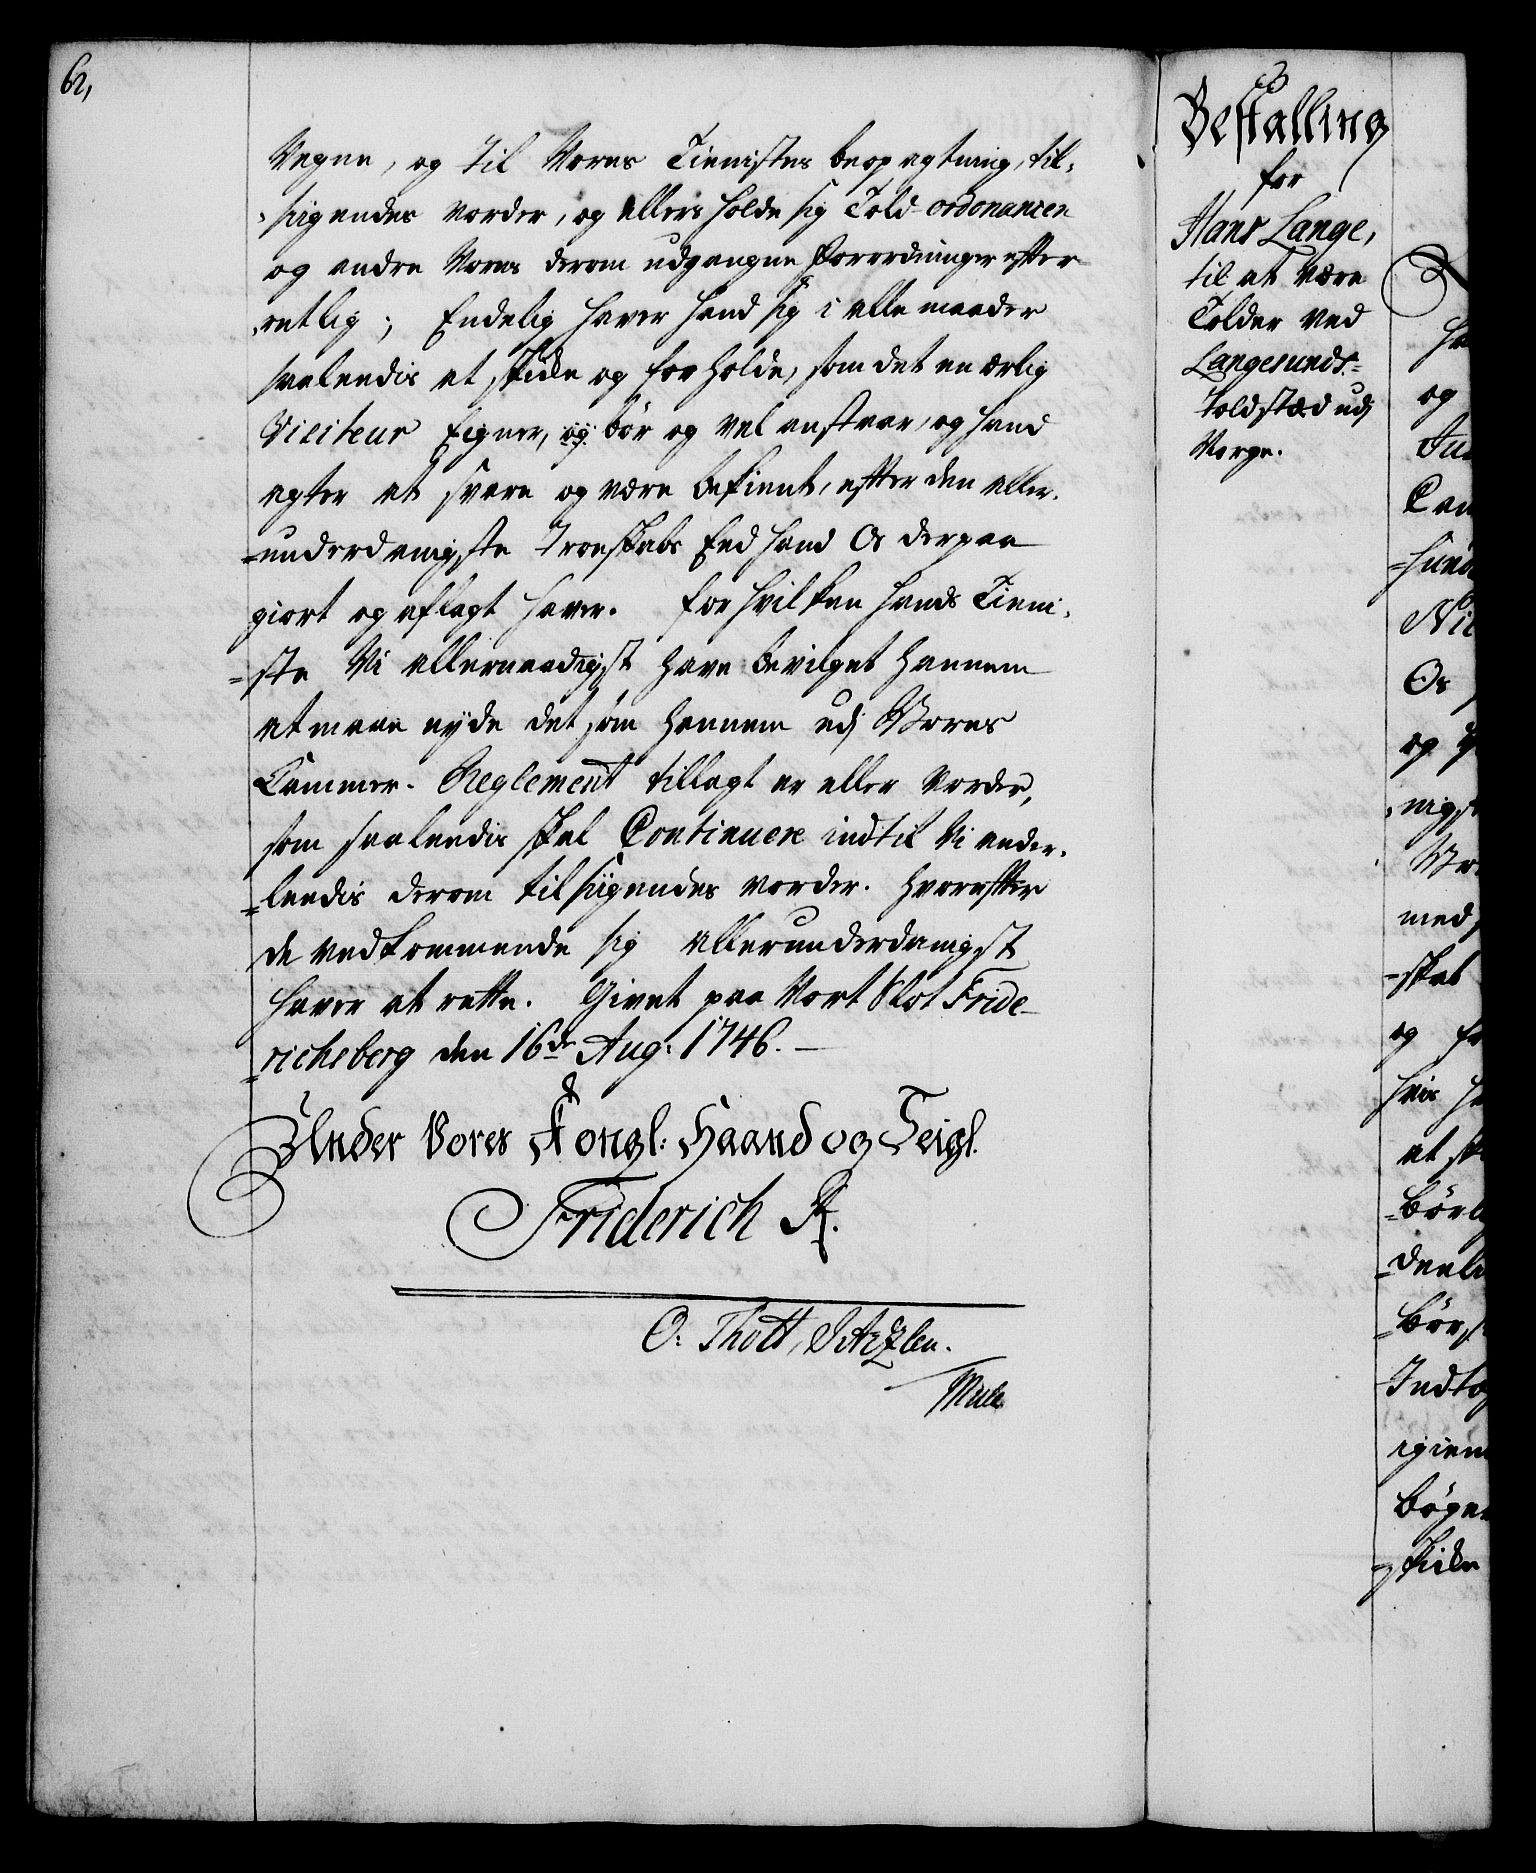 62,
Vegne, og til Vores Tienistes beopagtning, til-
-sigendes vorder, og ellers holde sig Told-ordonancen
og andre Vores derom udgangne Forordninger efter-
-retlig; Endelig haver hand sig i alle maader
saaledis at skicke og forholde, som det en ærlig
Visiteur Eigner, og bör og vel anstaar, og hand
agter at svare og være bekient, efter den aller-
=underdanigste Troeskabs Eed hand Os derpaa
giort og aflagt haver. For hvilken hands Tieni-
=ste Vi allernaadigst have bevilget hannem
at maae nyde det som hannem udj Vores
Cammer-Reglement tillagt er eller vorder,
som saaledis skal Continuere indtil Vi ander-
=leedis derom tilsigendes vorder. Hvorefter
de vedkommende sig allerunderdanigst
haver at rette. Givet paa Vort Slot Fride-
=richsberg den 16de Aug: 1746.
Under Vores Kongl: Haand og Seigl.
Friderich R.
O: Thott,
Mule
Bestalling
for
Hans Lange,
til at være
Tolder ved
Langesunds-
Toldstæd udj
Norge.
og
Os
og
-nigst
med
-skal
og
hvis
at
=börl
=deele
=bör
Indtæg
igien
bøger
=skicke